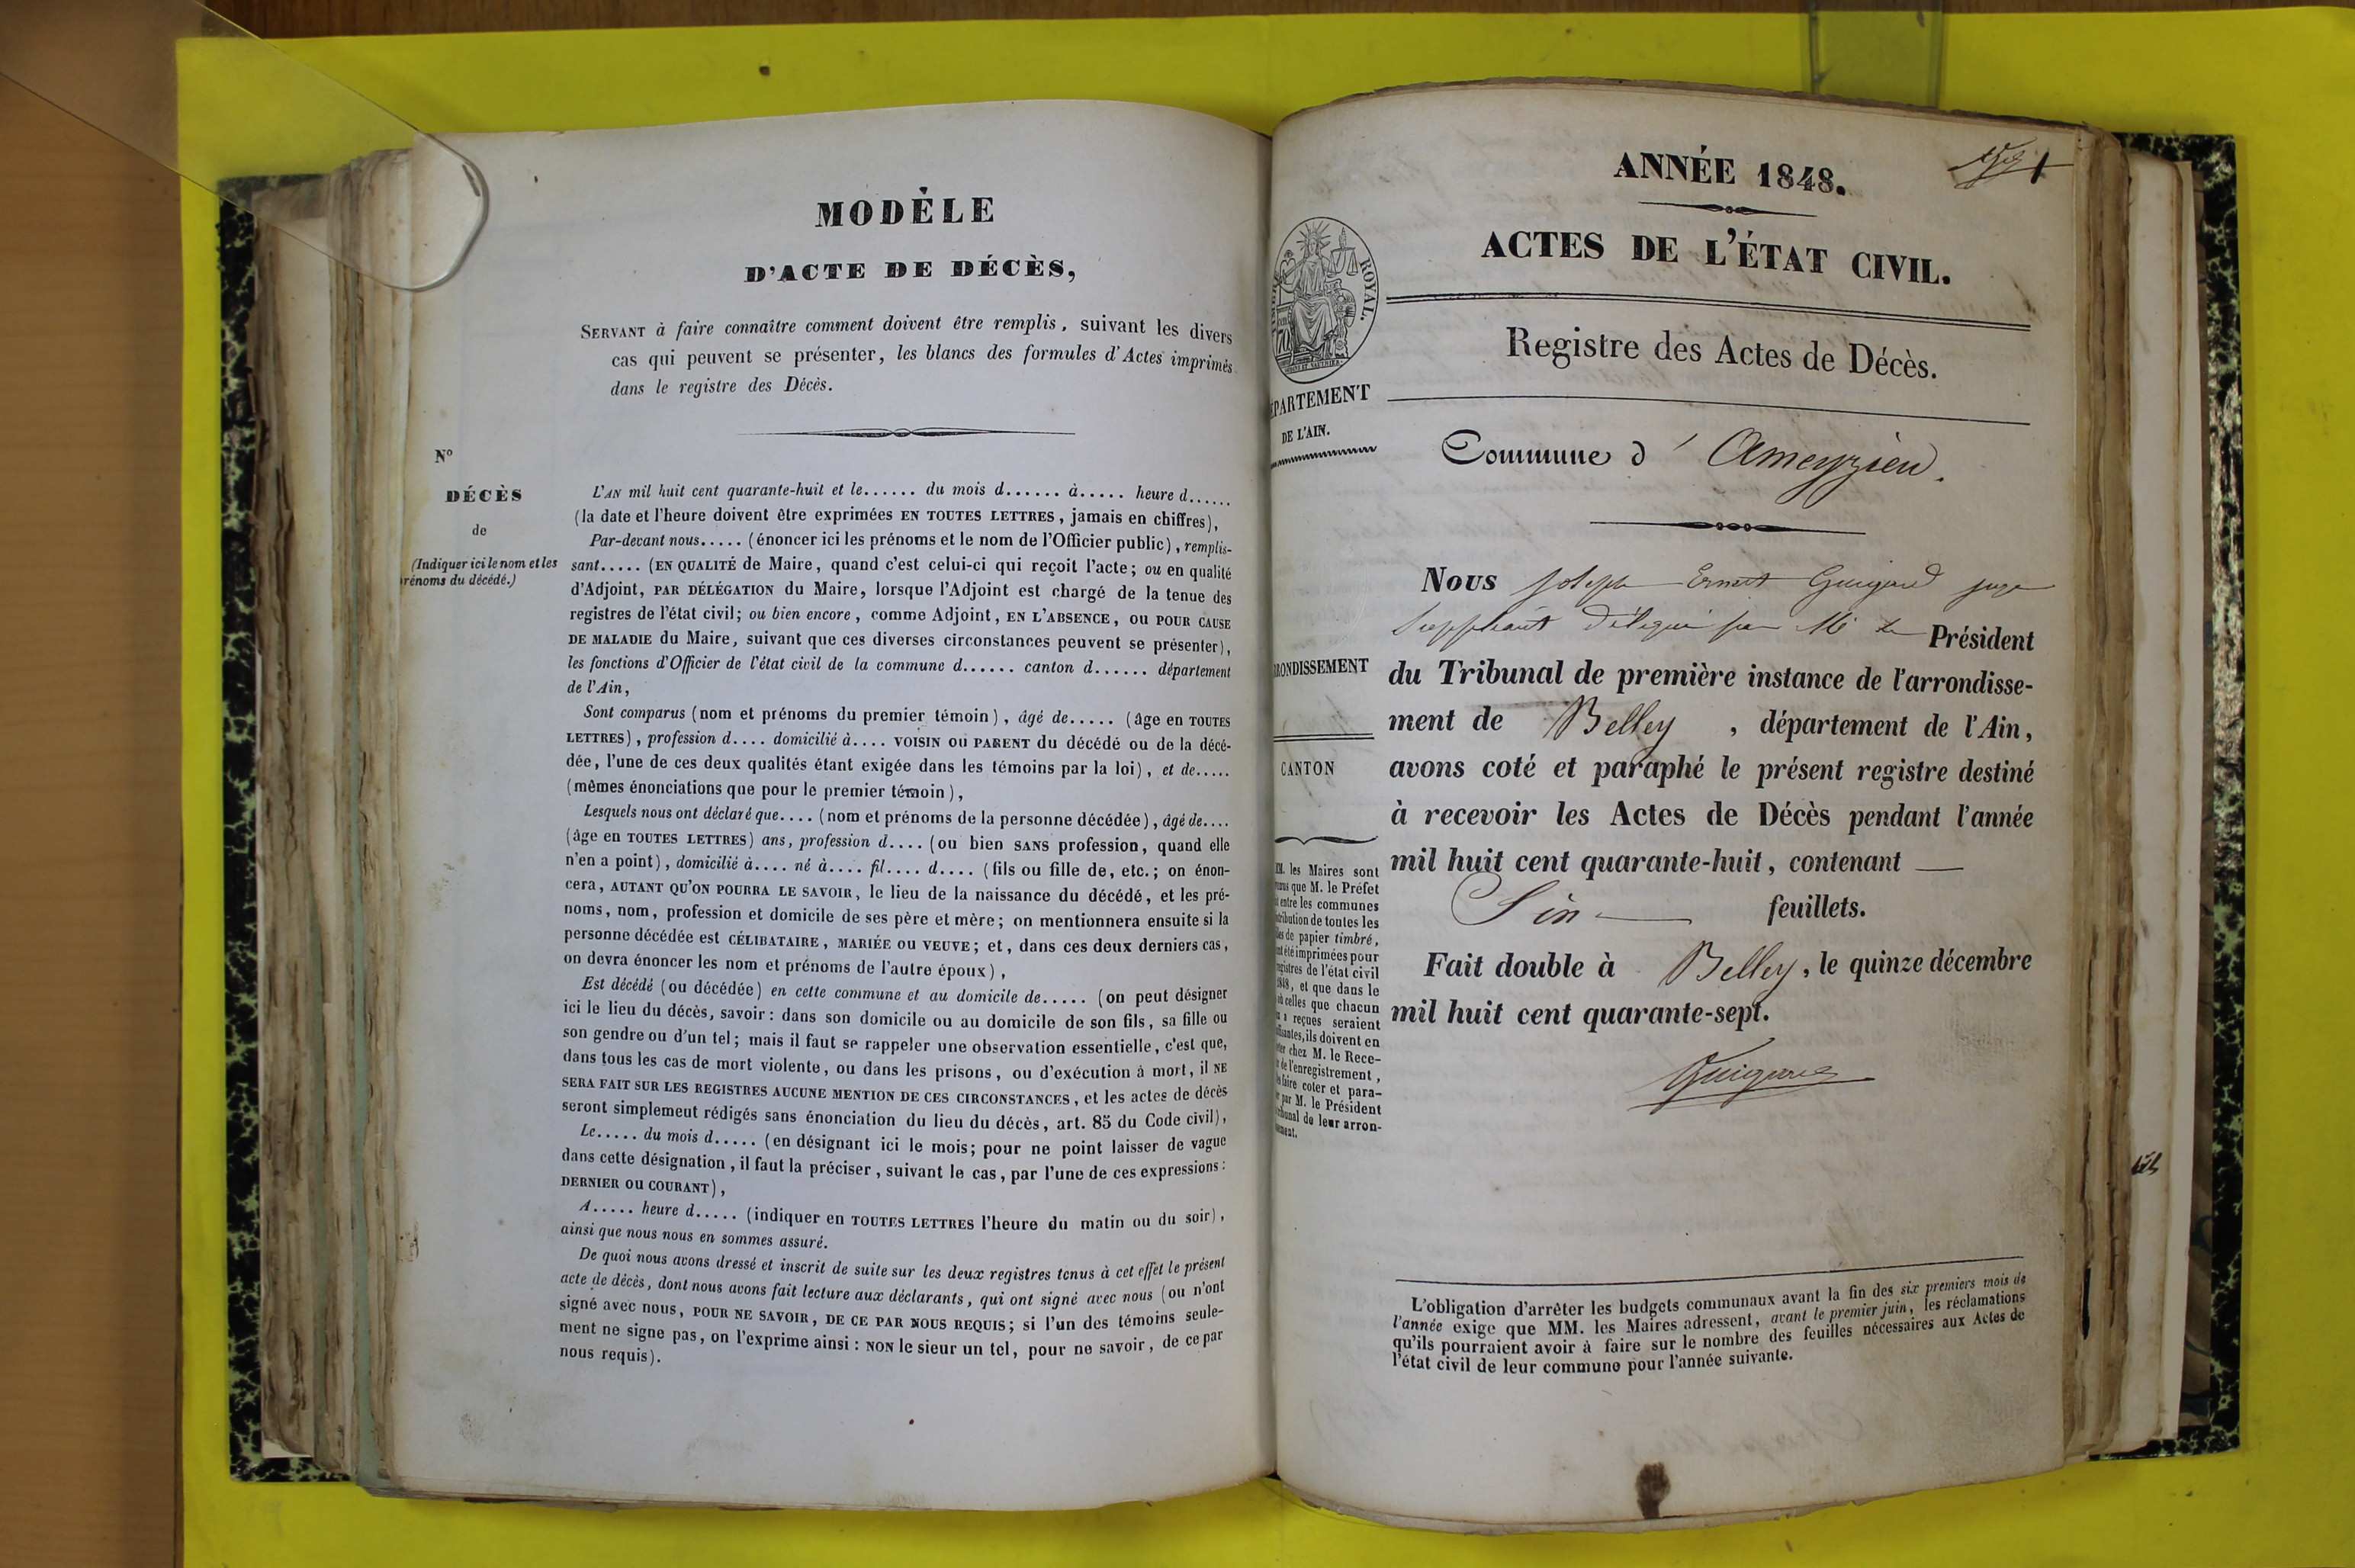 MODÈLE
D'ACTE DE DÉCÈS,
SERVANT à faire connaître comment doivent être remplis, suivant les divers
cas qui peuvent se présenter, les blancs des formules d'Actes imprimés
dans le registre des Décès.
N°
DÉCÈS
de
(Indiquer ici le nom et les
prénoms du décédé.)
L'AN mil huit cent quarante-huit et le...... du mois d...... à..... heure d......
(la date et l'heure doivent être exprimées EN TOUTES LETTRES, jamais en chiffres),
Par-devant nous..... (énoncer ici les prénoms et le nom de l'Officier public), remplis-
sant..... (EN QUALITÉ de Maire, quand c'est celui-ci qui reçoit l'acte; ou en qualité
d'Adjoint, PAR DÉLÉGATION du Maire, lorsque l'Adjoint est chargé de la tenue des
registres de l'état civil; ou bien encore, comme Adjoint, EN L'ABSENCE, OU POUR CAUSE
DE MALADIE du Maire, suivant que ces diverses circonstances peuvent se présenter),
les fonctions d'Officier de l'état civil de la commune d...... canton d...... département
de l'Ain,
Sont comparus (nom et prénoms du premier témoin), âgé de..... (âge en TOUTES
LETTRES), profession d.... domicilié à.... VOISIN OU PARENT du décédé ou de la décé-
dée, l'une de ces deux qualités étant exigée dans les témoins par la loi), et de.....
(mêmes énonciations que pour le premier témoin),
Lesquels nous ont déclaré que.... (nom et prénoms de la personne décédée), âgé de....
(âge en TOUTES LETTRES) ans, profession d.... (ou bien SANS profession, quand elle
n'en a point), domicilié à.... né à.... fil.... d.... (fils ou fille de, etc.; on énon-
cera, AUTANT QU'ON POURRA LE SAVOIR, le lieu de la naissance du décédé, et les pré-
noms, nom, profession et domicile de ses père et mère; on mentionnera ensuite si la
personne décédée est CÉLIBATAIRE, MARIÉE OU VEUVE; et, dans ces deux derniers cas,
on devra énoncer les nom et prénoms de l'autre époux),
Est décédé (ou décédée) en cette commune et au domicile de..... (on peut désigner
ici le lieu du décès, savoir: dans son domicile ou au domicile de son fils, sa fille ou
son gendre ou d'un tel; mais il faut se rappeler une observation essentielle, c'est que,
dans tous les cas de mort violente, ou dans les prisons, ou d'exécution à mort, il NE
SERA FAIT SUR LES REGISTRES AUCUNE MENTION DE CES CIRCONSTANCES, et les actes de décès
seront simplement rédigés sans énonciation du lieu du décès, art. 85 du Code civil),
Le..... du mois d..... (en désignant ici le mois; pour ne point laisser de vague
dans cette désignation, il faut la préciser, suivant le cas, par l'une de ces expressions:
DERNIER OU COURANT),
A..... heure d..... (indiquer en TOUTES LETTRES l'heure du matin ou du soir),
ainsi que nous nous en sommes assuré.
De quoi nous avons dressé et inscrit de suite sur les deux registres tenus à cet effet le présent
acte de décès, dont nous avons fait lecture aux déclarants, qui ont signé avec nous (ou n'ont
signé avec nous, POUR NE SAVOIR, DE CE PAR NOUS REQUIS; si l'un des témoins seule-
ment ne signe pas, on l'exprime ainsi: NON le sieur un tel, pour ne savoir, de ce par
nous requis).
1
ANNÉE 1848.
ACTES DE L'ÉTAT CIVIL.
ROYAL.
Registre des Actes de Décès.
PARTEMENT
DE L'AIN.
Commune d'Ameyzieu.
Nous Joseph Ernest Guigard juge
Suppléant délégué par Mr le Président
du Tribunal de première instance de l'arrondisse-
ment de Belley, département de l'Ain,
avons coté et paraphé le présent registre destiné
à recevoir les Actes de Décès pendant l'année
mil huit cent quarante-huit, contenant —
Six — feuillets.
Fait double à Belley, le quinze décembre
mil huit cent quarante-sept.
Guigard
RONDISSEMENT
CANTON
MM. les Maires sont
que M. le Préfet
entre les communes
tribution de toutes les
de papier timbré,
été imprimées pour
registres de l'état civil
1848, et que dans le
celles que chacun
reçues seraient
ils doivent en
chez M. le Rece-
de l'enregistrement,
faire coter et para-
par M. le Président
de leur arron-
L'obligation d'arrêter les budgets communaux avant la fin des six premiers mois de
l'année exige que MM. les Maires adressent, avant le premier juin, les réclamations
qu'ils pourraient avoir à faire sur le nombre des feuilles nécessaires aux Actes de
l'état civil de leur commune pour l'année suivante.